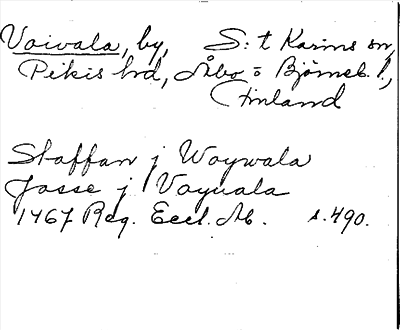 Vaivala, by, S:t Karins sn,
Pikis hd, Åbo o Björneb. l.,
Finland
Staffan j Woywala
Josse j Voyvala
1467 Reg. Eccl. Ab. s. 490.